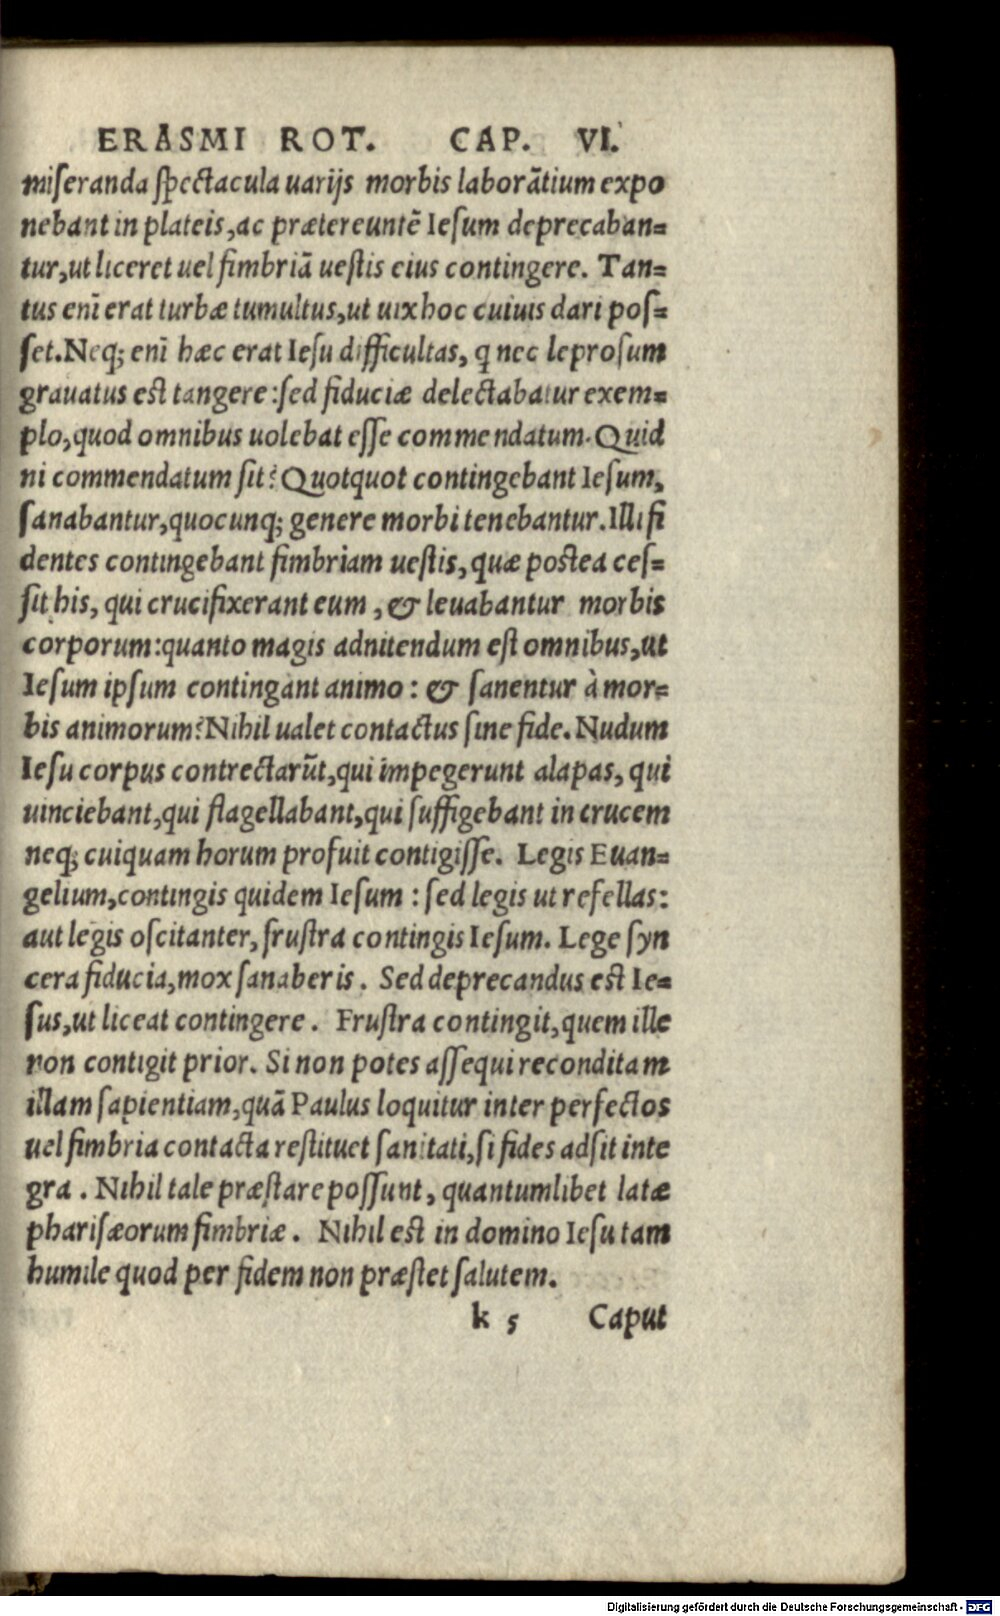 ERASMI ROT. CAP. VI.
miſeranda ſpectacula uarijs morbis laborãtium expo
nebant in plateis, ac prætereuntẽ Ieſum deprecaban=
tur, ut liceret uel fimbriã ueſtis eius contingere. Tan=
tus enĩ erat turbæ tumultus, ut uix hoc cuiuis dari poſ=
ſet. Neq; enĩ hæc erat Ieſu difficultas, q nec leproſum
grauatus eſt tangere: ſed fiduciæ delectabatur exem=
plo, quod omnibus uolebat eſſe commendatum. Quid
ni commendatum ſit? Quotquot contingebant Ieſum,
ſanabantur, quocunq; genere morbi tenebantur. Illi fi
dentes contingebant fimbriam ueſtis, quæ poſtea ceſ=
ſit his, qui crucifixerant eum, & leuabantur morbis
corporum: quanto magis adnitendum eſt omnibus, ut
Ieſum ipſum contingant animo: & ſanentur à mor=
bis animorum? Nihil ualet contactus ſine fide. Nudum
Ieſu corpus contrectarũt, qui impegerunt alapas, qui
uinciebant, qui flagellabant, qui ſuffigebant in crucem
neq; cuiquam horum profuit contigiſſe. Legis Euan=
gelium, contingis quidem Ieſum: ſed legis ut refellas:
aut legis oſcitanter, fruſtra contingis Ieſum. Lege ſyn
cera fiducia, mox ſanaberis. Sed deprecandus eſt Ie=
ſus, ut liceat contingere. Fruſtra contingit, quem ille
non contigit prior. Si non potes aſſequi reconditam
illam ſapientiam, quã Paulus loquitur inter perfectos
uel fimbria contacta reſtituet ſanitati, ſi fides adſit inte
gra. Nihil tale præſtare poſſunt, quantumlibet latæ
phariſæorum fimbriæ. Nihil eſt in domino Ieſu tam
humile quod per fidem non præſtet ſalutem.
k 5 Caput
Digitalisierung gefördert durch die Deutsche Forschungsgemeinschaft - DFG